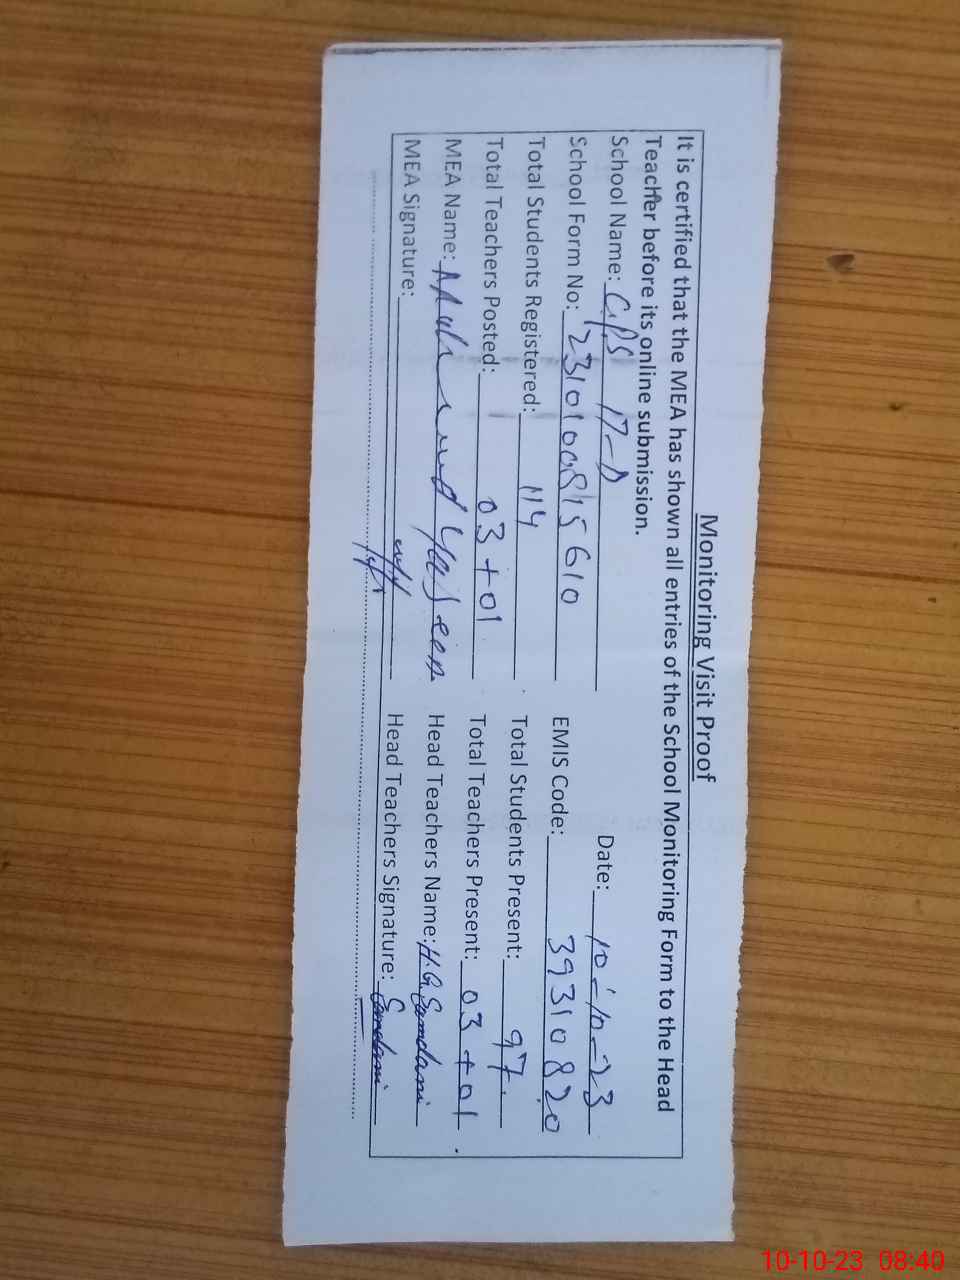 Monitoring Visit Proof
It is certified that the MEA has shown all entries of the School Monitoring Form to the Head
Teacher before its online submission.
School Name: GPS 17-D Date: 10-10-23
School Form No: 2310100815610 EMIS Code: 39310820
Total Students Registered: 114 Total Students Present: 97
Total Teachers Posted: 03+01 Total Teachers Present: 03+01
MEA Name: Yaseen Head Teachers Name: H.G. Samdani
MEA Signature: Head Teachers Signature: Samdani
10-10-23 08:40